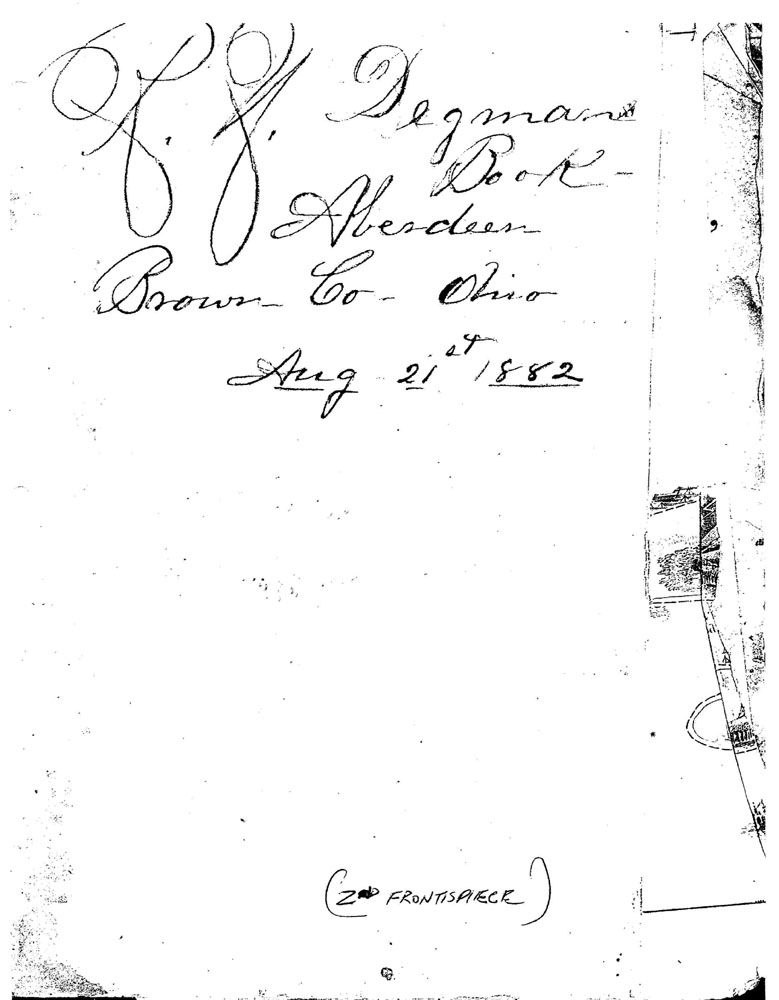 Degmans
Book -
Aberdeen
Brown Co - Ohio
Aug 21st 1882
(2nd FRONTISPIECE)